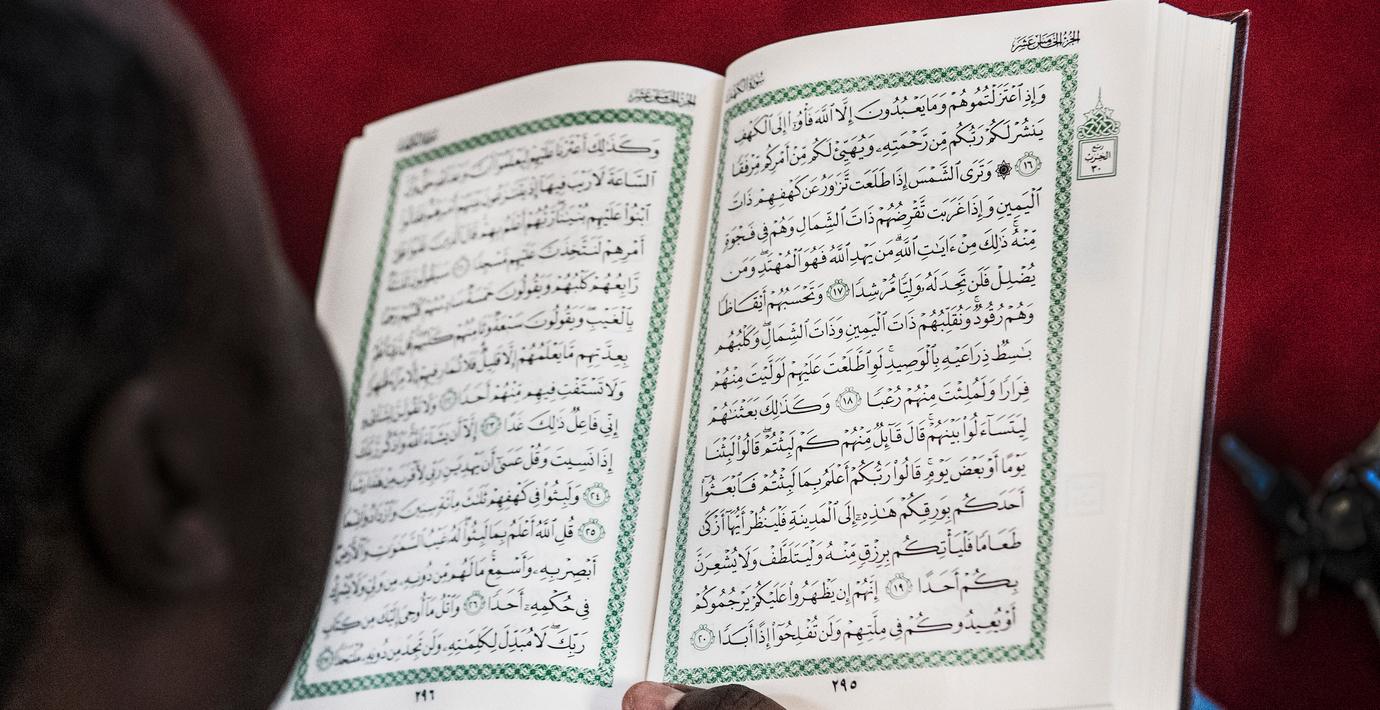 الجزء الخامس عشر
سورة الكهف
وَإِذِ ٱعۡتَزَلۡتُمُوهُمۡ وَمَا يَعۡبُدُونَ إِلَّا ٱللَّهَ فَأۡوُۥٓاْ إِلَى ٱلۡكَهۡفِ
يَنشُرۡ لَكُمۡ رَبُّكُم مِّن رَّحۡمَتِهِۦ وَيُهَيِّئۡ لَكُم مِّنۡ أَمۡرِكُم مِّرۡفَقٗا
١٦ ۞ وَتَرَى ٱلشَّمۡسَ إِذَا طَلَعَت تَّزَٰوَرُ عَن كَهۡفِهِمۡ ذَاتَ
ٱلۡيَمِينِ وَإِذَا غَرَبَت تَّقۡرِضُهُمۡ ذَاتَ ٱلشِّمَالِ وَهُمۡ فِي فَجۡوَةٖ
مِّنۡهُۚ ذَٰلِكَ مِنۡ ءَايَٰتِ ٱللَّهِۗ مَن يَهۡدِ ٱللَّهُ فَهُوَ ٱلۡمُهۡتَدِۖ وَمَن
يُضۡلِلۡ فَلَن تَجِدَ لَهُۥ وَلِيّٗا مُّرۡشِدٗا ١٧ وَتَحۡسَبُهُمۡ أَيۡقَاظٗا
وَهُمۡ رُقُودٞۚ وَنُقَلِّبُهُمۡ ذَاتَ ٱلۡيَمِينِ وَذَاتَ ٱلشِّمَالِۖ وَكَلۡبُهُم
بَٰسِطٞ ذِرَاعَيۡهِ بِٱلۡوَصِيدِۚ لَوِ ٱطَّلَعۡتَ عَلَيۡهِمۡ لَوَلَّيۡتَ مِنۡهُمۡ
فِرَارٗا وَلَمُلِئۡتَ مِنۡهُمۡ رُعۡبٗا ١٨ وَكَذَٰلِكَ بَعَثۡنَٰهُمۡ
لِيَتَسَآءَلُواْ بَيۡنَهُمۡۚ قَالَ قَآئِلٞ مِّنۡهُمۡ كَمۡ لَبِثۡتُمۡۖ قَالُواْ لَبِثۡنَا
يَوۡمًا أَوۡ بَعۡضَ يَوۡمٖۚ قَالُواْ رَبُّكُمۡ أَعۡلَمُ بِمَا لَبِثۡتُمۡ فَٱبۡعَثُوٓاْ
أَحَدَكُم بِوَرِقِكُمۡ هَٰذِهِۦٓ إِلَى ٱلۡمَدِينَةِ فَلۡيَنظُرۡ أَيُّهَآ أَزۡكَىٰ
طَعَامٗا فَلۡيَأۡتِكُم بِرِزۡقٖ مِّنۡهُ وَلۡيَتَلَطَّفۡ وَلَا يُشۡعِرَنَّ
بِكُمۡ أَحَدًا ١٩ إِنَّهُمۡ إِن يَظۡهَرُواْ عَلَيۡكُمۡ يَرۡجُمُوكُمۡ
أَوۡ يُعِيدُوكُمۡ فِي مِلَّتِهِمۡ وَلَن تُفۡلِحُوٓاْ إِذًا أَبَدٗا ٢٠
ربع
الحزب
٣٠
٢٩٥
الجزء الخامس عشر
وَكَذَٰلِكَ أَعۡثَرۡنَا عَلَيۡهِمۡ لِيَعۡلَمُوٓاْ
ٱلسَّاعَةَ لَا رَيۡبَ فِيهَآ إِذۡ يَتَنَٰزَعُونَ بَيۡنَهُمۡ أَمۡرَهُمۡۖ فَقَالُواْ
ٱبۡنُواْ عَلَيۡهِم بُنۡيَٰنٗاۖ رَّبُّهُمۡ أَعۡلَمُ بِهِمۡۚ قَالَ ٱلَّذِينَ غَلَبُواْ عَلَىٰٓ
أَمۡرِهِمۡ لَنَتَّخِذَنَّ عَلَيۡهِم مَّسۡجِدٗا ٢١ سَيَقُولُونَ ثَلَٰثَةٞ
رَّابِعُهُمۡ كَلۡبُهُمۡ وَيَقُولُونَ خَمۡسَةٞ سَادِسُهُمۡ كَلۡبُهُمۡ رَجۡمَۢا
بِٱلۡغَيۡبِۖ وَيَقُولُونَ سَبۡعَةٞ وَثَامِنُهُمۡ كَلۡبُهُمۡۚ قُل رَّبِّيٓ أَعۡلَمُ
بِعِدَّتِهِم مَّا يَعۡلَمُهُمۡ إِلَّا قَلِيلٞۗ فَلَا تُمَارِ فِيهِمۡ إِلَّا مِرَآءٗ ظَٰهِرٗا
وَلَا تَسۡتَفۡتِ فِيهِم مِّنۡهُمۡ أَحَدٗا ٢٢ وَلَا تَقُولَنَّ لِشَاْيۡءٍ
إِنِّي فَاعِلٞ ذَٰلِكَ غَدًا ٢٣ إِلَّآ أَن يَشَآءَ ٱللَّهُۚ وَٱذۡكُر رَّبَّكَ
إِذَا نَسِيتَ وَقُلۡ عَسَىٰٓ أَن يَهۡدِيَنِ رَبِّي لِأَقۡرَبَ مِنۡ هَٰذَا رَشَدٗا
٢٤ وَلَبِثُواْ فِي كَهۡفِهِمۡ ثَلَٰثَ مِاْئَةٖ سِنِينَ وَٱزۡدَادُواْ تِسۡعٗا
٢٥ قُلِ ٱللَّهُ أَعۡلَمُ بِمَا لَبِثُواْۖ لَهُۥ غَيۡبُ ٱلسَّمَٰوَٰتِ وَٱلۡأَرۡضِۖ
أَبۡصِرۡ بِهِۦ وَأَسۡمِعۡۚ مَا لَهُم مِّن دُونِهِۦ مِن وَلِيّٖ وَلَا يُشۡرِكُ
فِي حُكۡمِهِۦٓ أَحَدٗا ٢٦ وَٱتۡلُ مَآ أُوحِيَ إِلَيۡكَ مِن كِتَابِ
رَبِّكَۖ لَا مُبَدِّلَ لِكَلِمَٰتِهِۦ وَلَن تَجِدَ مِن دُونِهِۦ مُلۡتَحَدٗا ٢٧
٢٩٦